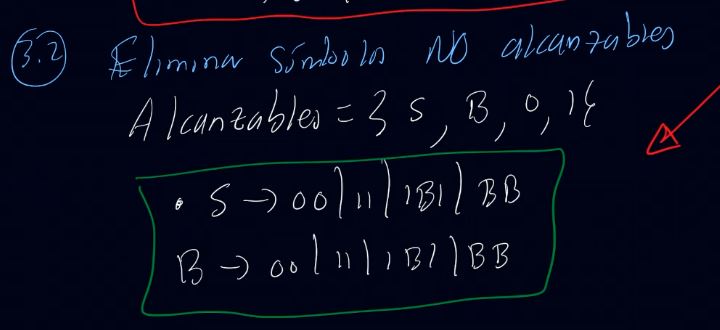 3.2 Eliminar símbolos NO alcanzables
Alcanzables = { S, B, 0, 1 }
• S → 00 | 11 | 1B1 | BB
B → 00 | 11 | 1B1 | BB